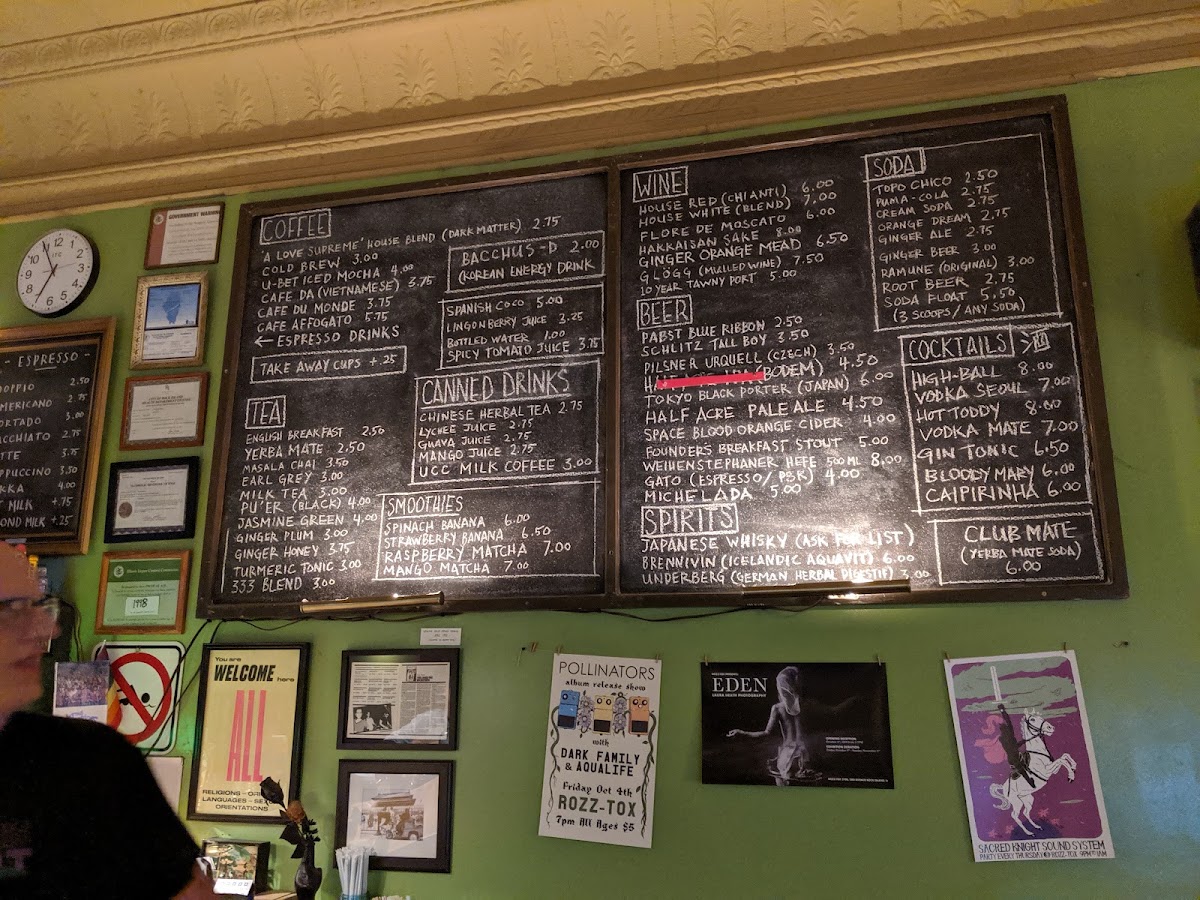 GOVERNMENT WARNING
- ESPRESSO -
DOPPIO 2.50
AMERICANO 2.75
CORTADO 3.00
MACCHIATO 2.75
3.75
CAPPUCCINO 3.50
4.00
MILK +.75
ALMOND MILK +.25
COFFEE
'A LOVE SUPREME' HOUSE BLEND (DARK MATTER) 2.75
COLD BREW 3.00
U-BET ICED MOCHA 4.00
CAFE DA (VIETNAMESE) 3.75
CAFE DU MONDE 3.75
CAFE AFFOGATO 5.75
← ESPRESSO DRINKS
TAKE AWAY CUPS +.25
BACCHUS-D 2.00
(KOREAN ENERGY DRINK
SPANISH COCO 5.00
LINGONBERRY JUICE 3.25
BOTTLED WATER 1.00
SPICY TOMATO JUICE 3.75
TEA
ENGLISH BREAKFAST 2.50
YERBA MATE 2.50
MASALA CHAI 3.50
EARL GREY 3.00
MILK TEA 3.00
PU'ER (BLACK) 4.00
JASMINE GREEN 4.00
GINGER PLUM 3.00
GINGER HONEY 3.75
TURMERIC TONIC 3.00
333 BLEND 3.00
CANNED DRINKS
CHINESE HERBAL TEA 2.75
LYCHEE JUICE 2.75
GUAVA JUICE 2.75
MANGO JUICE 2.75
UCC MILK COFFEE 3.00
SMOOTHIES
SPINACH BANANA 6.00
STRAWBERRY BANANA 6.50
RASPBERRY MATCHA 7.00
MANGO MATCHA 7.00
WINE
HOUSE RED (CHIANTI) 6.00
HOUSE WHITE (BLEND) 7.00
FLORE DE MOSCATO 6.00
HAKKAISAN SAKE 8.00
GINGER ORANGE MEAD 6.50
GLÖGG (MULLED WINE) 7.50
10 YEAR TAWNY PORT 5.00
BEER
PABST BLUE RIBBON 2.50
SCHLITZ TALL BOY 3.50
PILSNER URQUELL (CZECH) 3.50
(BODEM) 4.50
TOKYO BLACK PORTER (JAPAN) 6.00
HALF ACRE PALE ALE 4.50
SPACE BLOOD ORANGE CIDER 4.00
FOUNDERS BREAKFAST STOUT 5.00
WEIHENSTEPHANER HEFE 500 ML 8.00
GATO (ESPRESSO/PBR) 4.00
MICHELADA 5.00
SPIRITS
JAPANESE WHISKY (ASK FOR LIST)
BRENNIVIN (ICELANDIC AQUAVIT) 6.00
UNDERBERG (GERMAN HERBAL DIGESTIF) 3.00
SODA
TOPO CHICO 2.50
PUMA-COLA 2.75
CREAM SODA 2.75
ORANGE DREAM 2.75
GINGER ALE 2.75
GINGER BEER 3.00
RAMUNE (ORIGINAL) 3.00
ROOT BEER 2.75
SODA FLOAT 5.50
(3 SCOOPS / ANY SODA)
COCKTAILS
HIGH-BALL 8.00
VODKA SEOUL 7.00
HOT TODDY 8.00
VODKA MATE 7.00
GIN TONIC 6.50
BLOODY MARY 6.00
CAIPIRINHA 6.00
CLUB MATE
(YERBA MATE SODA)
6.00
1998
You are
WELCOME here
ALL
RELIGIONS
LANGUAGES
ORIENTATIONS
POLLINATORS
album release show
with
DARK FAMILY
& AQUALIFE
Friday Oct 4th
ROZZ-TOX
7pm All Ages $5
EDEN
SACRED KNIGHT SOUND SYSTEM
PARTY EVERY THURSDAY @ ROZZ-TOX 9PM TO 1AM